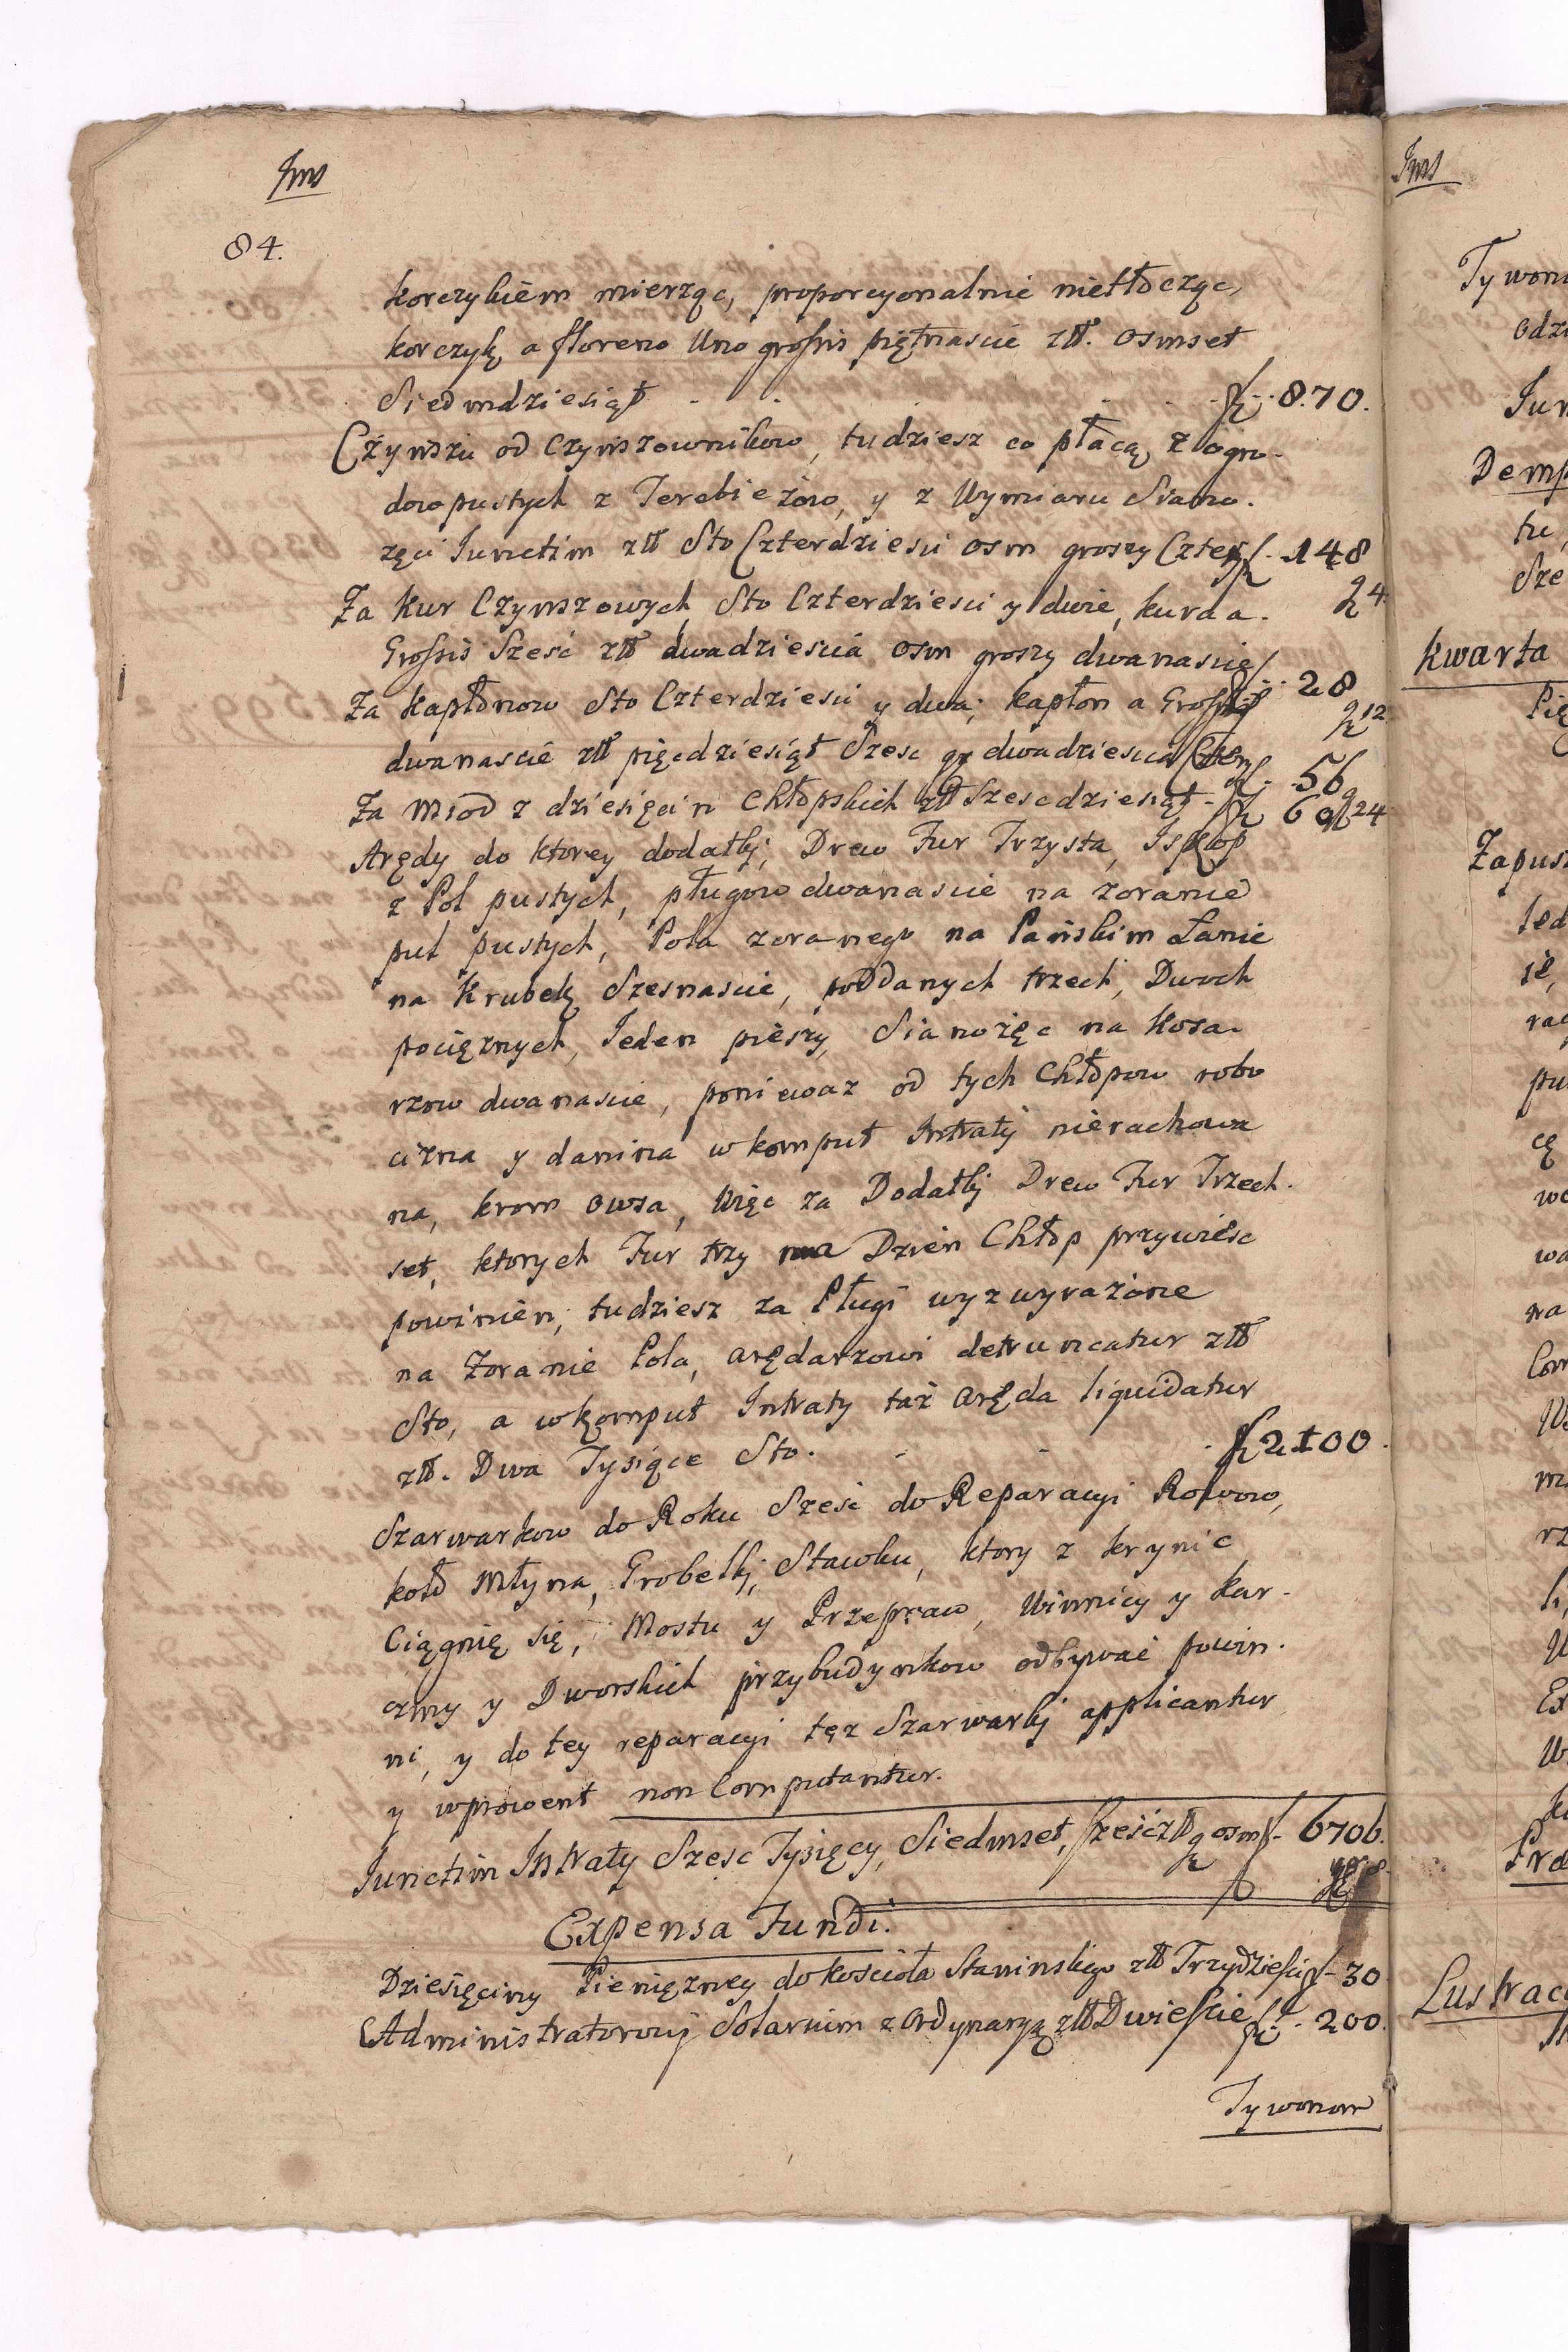 Jms
84.
korczykiem mierząc, proporcyonalnie nietłocząc,
korczyk a floreno Uno grossis piętnascie złł. osmset
Siedmdziesiąt - - - - - fl. 870.
Czynszu od Czynszownikow, tudziesz co płacą z ogro-
dow pustych z Terebieżow, y z Wymiaru Siano.
żęci Junctim złł Sto Czterdziesci osm groszy Cztery fl. 148
g 4.
Za kur Czynszowych Sto Czterdziesci y dwie, kura a.
Grossis Szesć złł dwadziescia osm groszy dwanascie fl. 28
g 12.
Za kapłonow Sto Czterdziesci y dwa; kapłon a Grossis
dwanascie złł pięcdziesiąt Szesc gr dwadziescia Cztery fl. 56
g 24
Za Miod z dziesięcin Chłopskich złł Szescdziesiąt - fl 60
Arędy do ktorey dodatki, Drew Fur Trzysta,
z Pol pustych, pługow dwanascie na zoranie
pul pustych, Pola zoranego na Pańskim Łanie
na Krubek Szesnascie, poddanych trzech, Dwoch
pociężnych, Jeden pieszy, Sianożęc na kosa-
rzow dwanascie, poniewaz od tych Chłopow robo
cizna y danina w komput Intraty nierachowa
na, krom owsa, Więc za Dodatki Drew Fur Trzech-
set, ktorych Fur trzy na Dzien Chłop przywiesc
powinien, tudziesz za Pługi wyzwyrażone
na Zoranie Pola, arędarzowi detruncatur złł
Sto, a w komput Intraty taż aręda liquidatur
złł. Dwa Tysiące Sto. - - - fl 2100.
Szarwarkow do Roku Szesć do Reparacyi Rowow,
koło Młyna, Grobelki, Stawku, ktory z krynic
Ciągnie się, Mostu y Przepraw, Winnicy y kar-
czmy y Dworskich przybudynkow odbywać powin-
ni, y do tey reparacyi tez Szarwarki applicantur
y wprowent non Computantur.
Junctim Intraty Szesc Tysięcy, Siedmset, Szesć złł g osm fl. 6706.
gr 8.
Expensa Fundi.
Dziesięciny Pieniężney do kościoła Staninskiego złł Trzydziesci fl - 30
Administratorowi Solarium z Ordynaryą złł Dwiescie fl. 200.
Tywonow
Jms
Tywon
odzi
Jun
Demp
tu,
Sze
kwarta
Pię
Zapus
Jed
Lustrac